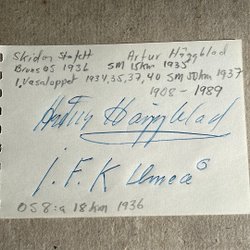 Skidor Stafett Artur Häggblad
Brons OS 1936 SM 15km 1935
1, Vasaloppet 1934,35,37,40 SM 50km 1937
1908 - 1989
Artur Häggblad
I.F.K Umeå
OS 8:a 18km 1936